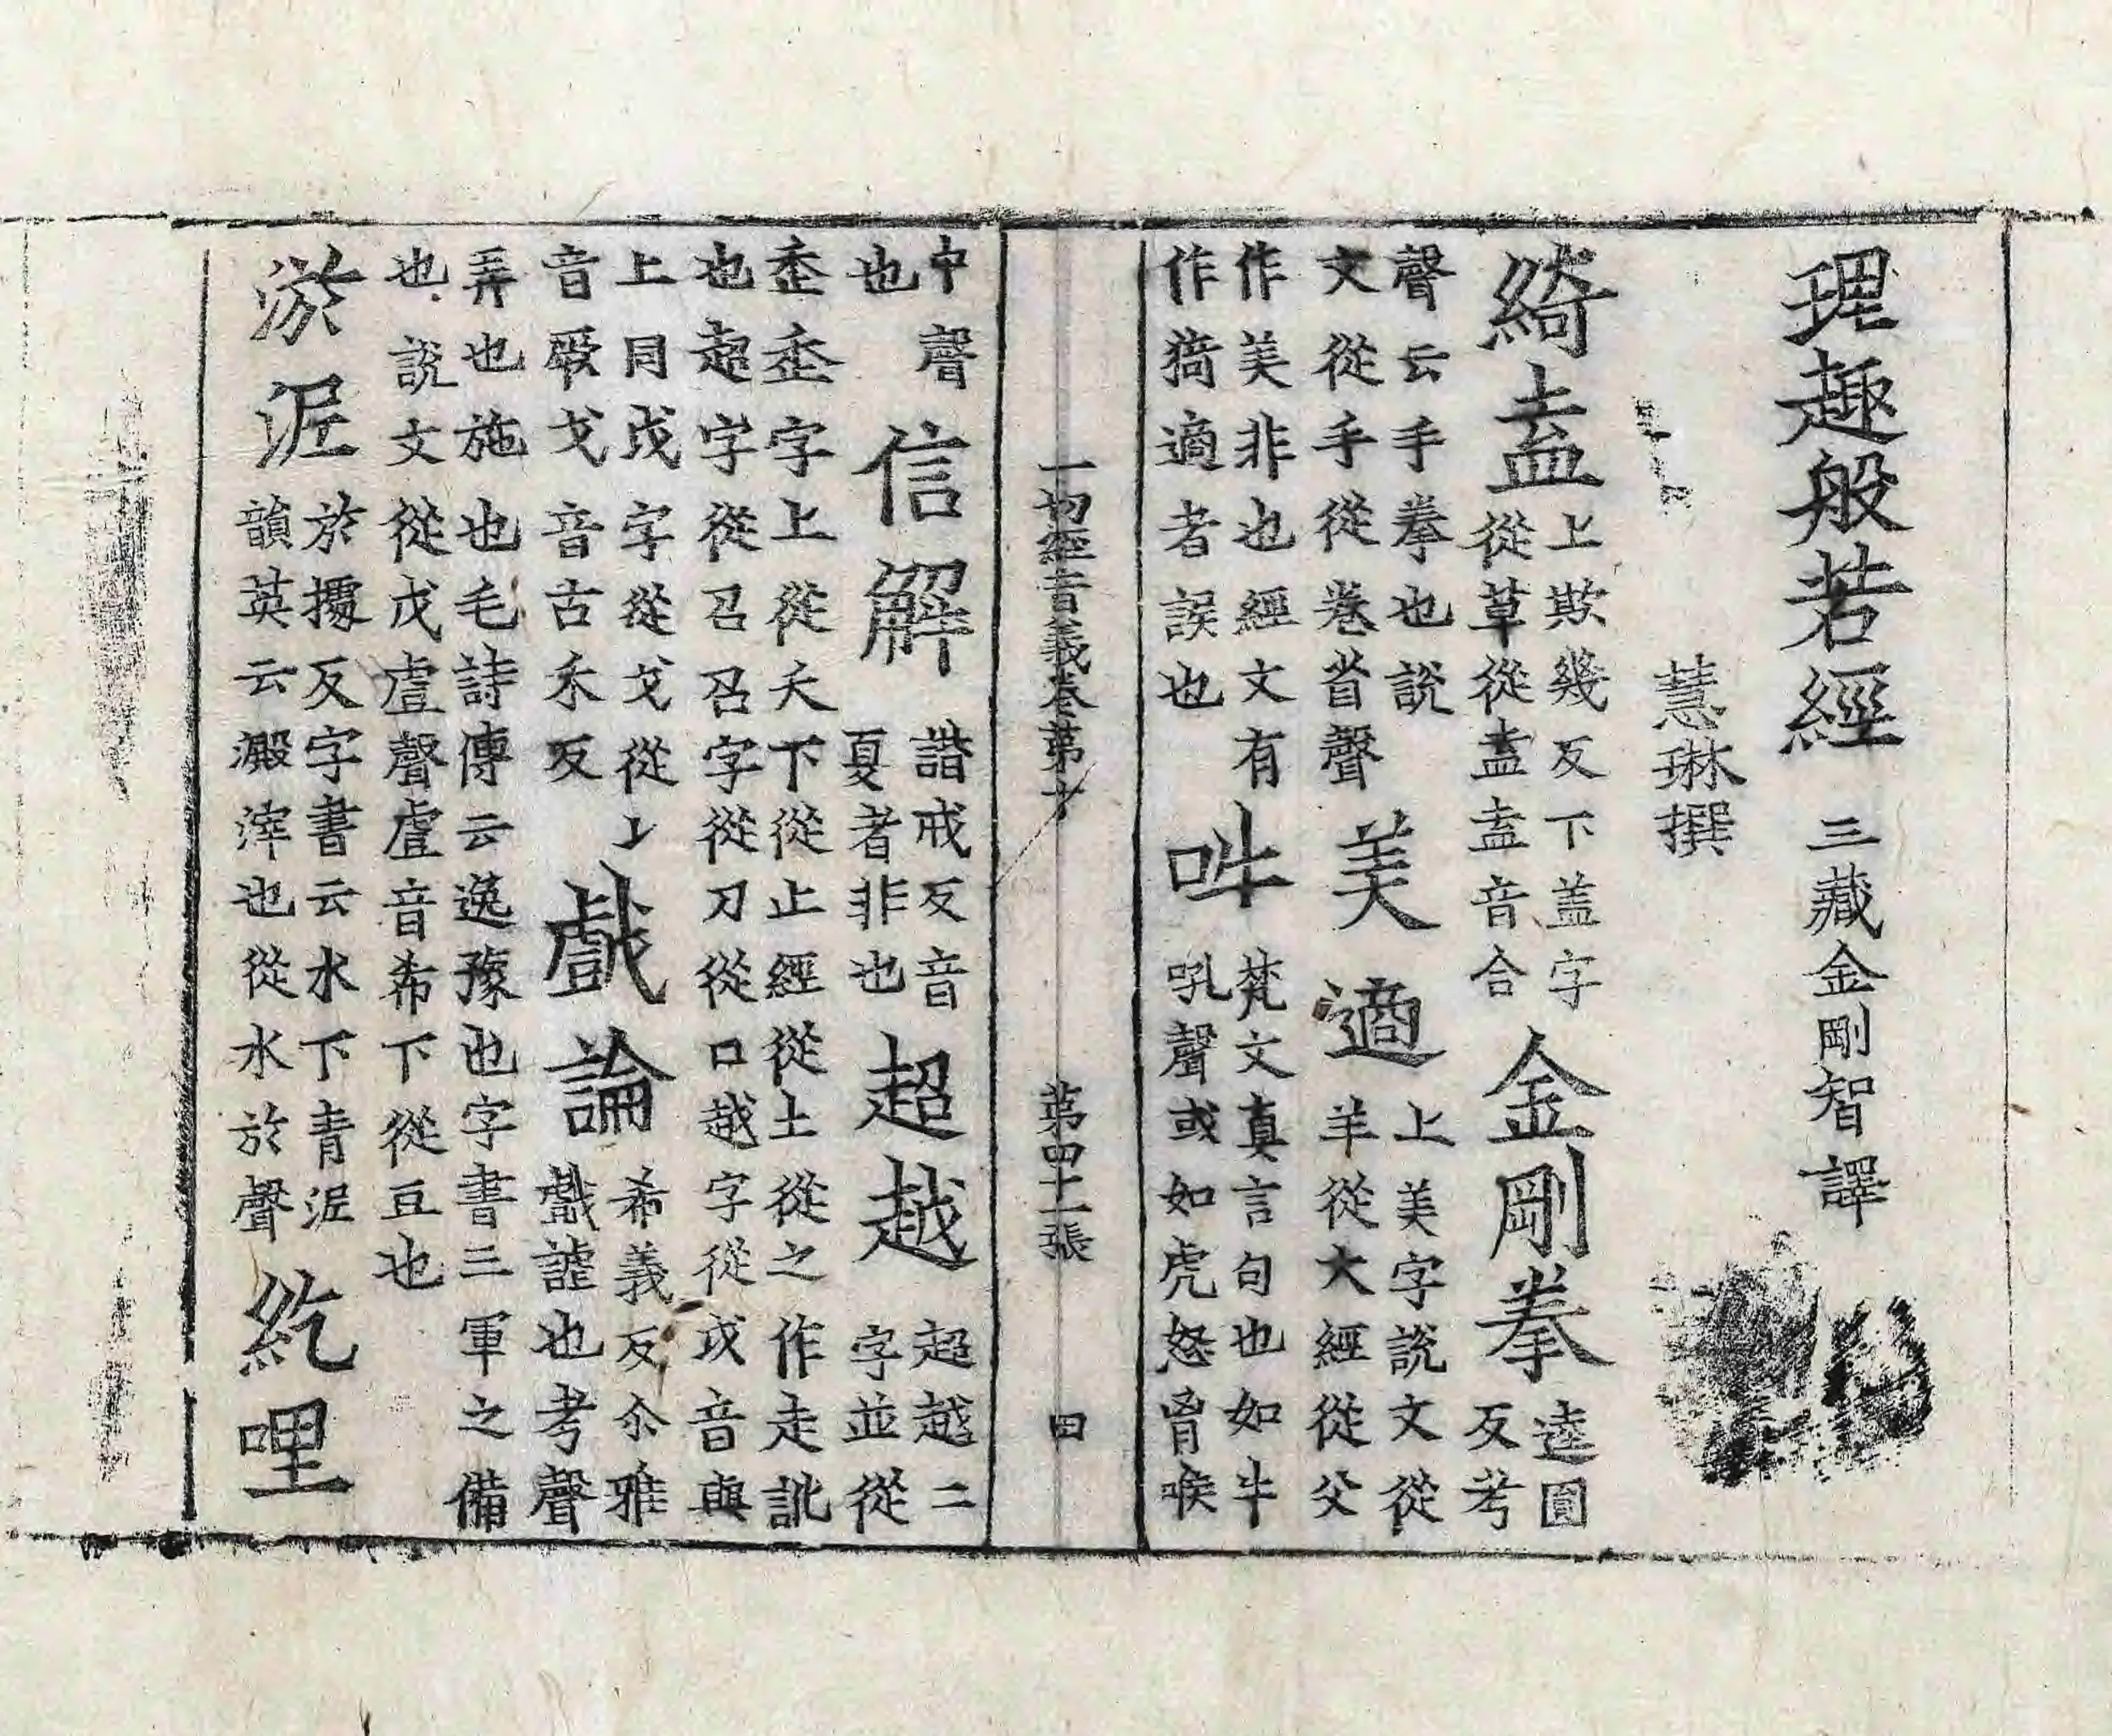 理趣般若經 三藏金剛智譯
慧琳撰
綺盖 上欺幾反下盖字從草從盍盍音合 金剛拳 逵圓反考
聲云手拳也說文從手從巻省聲 美適 上美字說文從羊從大經從父
作美非也經文有作猗適者誤也 吽 梵文真言句也如牛吼聲或如虎怒胷喉
一切經音義卷第十 第四十一張 田
中聲也 信解 諧戒反音夏者非也 超越 超越二字並從
歪歪字上從夭下從止經從土從之作走訛也超字從召召字從刀從口越字從戉音與
上同戉字從戈從𠄌音厥戈音古禾反 戲論 希義反尒雅戲謔也考聲
弄也施也毛詩傳云逸豫也字書三軍之備也說文從戈䖒聲䖒音希下從豆也
淤泥 於據反字書云水下青泥韻英云澱滓也從水於聲 紇哩